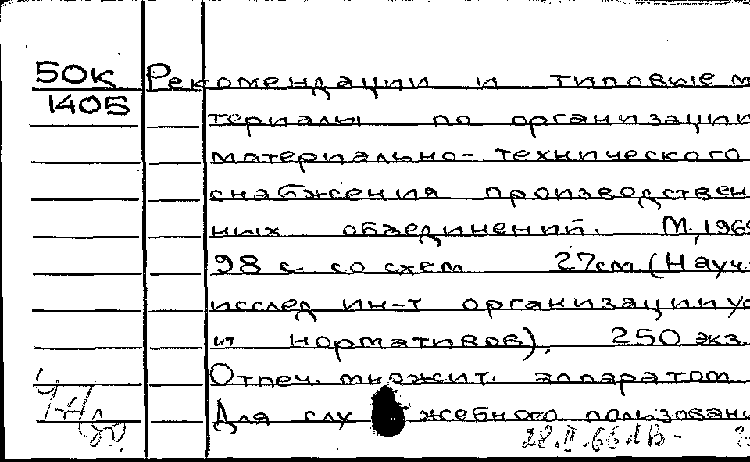 50к Рекомендации и типовые м
1405
териалы по организации
материально-технического
снабжения производствен
ных объединений. М, 196
98 с. со схем 27см (Науч.
исслед ин-т организации
и нормативов), 250 экз.
Отпеч. множит. аппаратом
Для служебного пользован
28.II.66